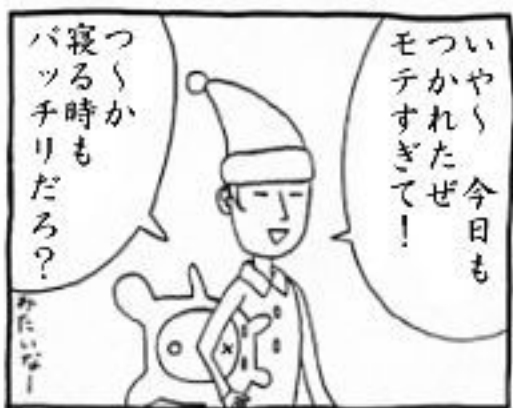 いや〜 今日も
つかれたぜ
モテすぎて!
つ〜か
寝る時も
バッチリだろ?
みたいなー